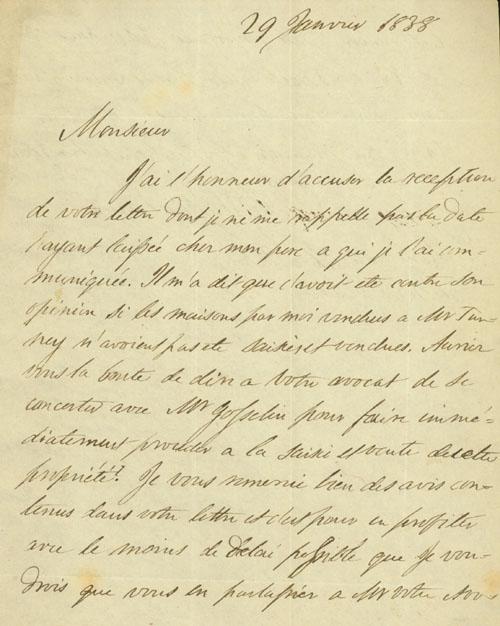 29 Janvier 1838
Monsieur
J'ai l'honneur d'accuser la reception
de votre lettre dont je ne me rappelle pas la date
l'ayant laissée chez mon pere a qui je l'ai com-
muniquée. Il m'a dit que c'avoit ete contre son
opinion si les maisons par moi vendues a Mr Tun-
ney n'avoient pas ete saisies et vendues. Auriez
vous la bonte de dire a votre avocat de se
concerter avec Mr Gosselin pour faire immé-
diatement proceder a la saisie et vente de cette
propriété. Je vous remercie bien des avis con-
tenus dans votre lettre et c'est pour en profiter
avec le moins de delai possible que je vou-
drois que vous en parlassiez a Mr votre Avo-